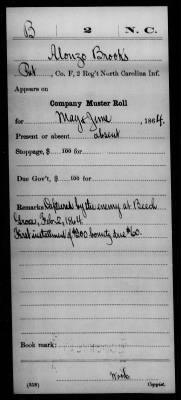 B 2 N. C.
Alonzo Brooks
Pvt, Co. F, 2 Reg't North Carolina Inf.
Appears on
Company Muster Roll
for May & June, 1864.
Present or absent absent
Stoppage, $ 100 for
Due Gov't, $ 100 for
Remarks Captured by the enemy at Beech
Grove, Feb 2, 1864
First installment of $100 bounty due $50.
Book mark:
(358) Copyist.